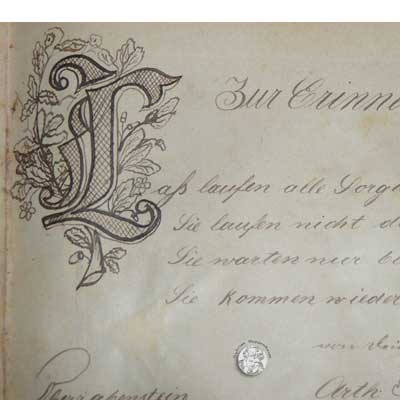 Zur Erinn
Laß laufen alle Sorg
Sie laufen nicht d
Sie warten nur b
Sie kommen wieder
von
Oberrabenstein
Arth